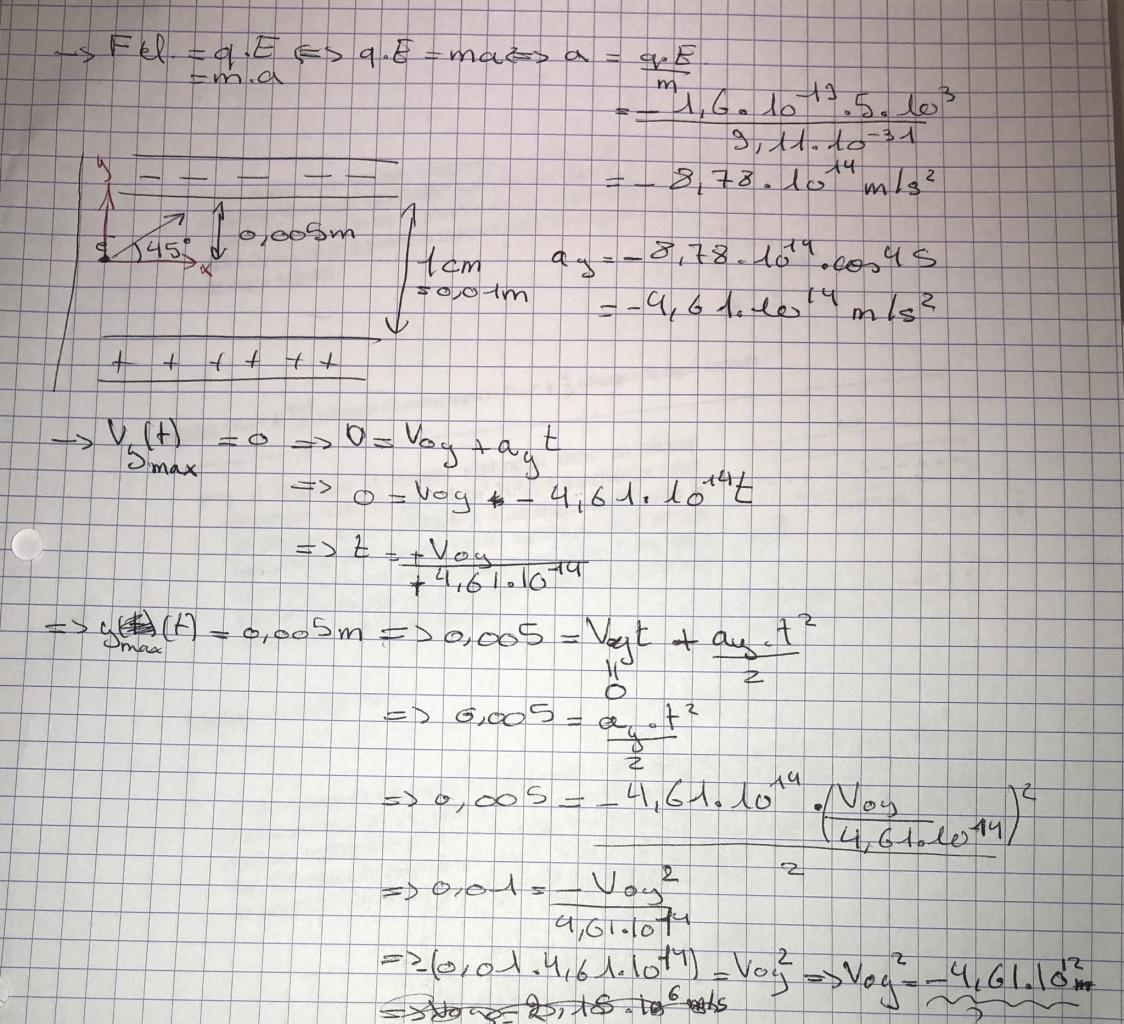 → Fel = q.E ⇔ q.E = ma ⇔ a = q.E / m
= m.a
= - 1,6.10^-19 . 5.10^3 / 9,11.10^-31
= - 8,78.10^14 m/s²
y
- - - - -
45°
x
0,005m
1cm
= 0,01m
+ + + + + +
ay = - 8,78.10^14 . cos 45
= - 4,61.10^14 m/s²
→ Vymax(t) = 0 ⇒ 0 = Voy + ay t
⇒ 0 = Voy - 4,61.10^14 t
⇒ t = + Voy / + 4,61.10^14
⇒ ymax(t) = 0,005m ⇒ 0,005 = Voyt + ay.t² / 2
= 0
⇒ 0,005 = ay.t² / 2
⇒ 0,005 = - 4,61.10^14 . (Voy / 4,61.10^14)² / 2
⇒ 0,01 = - Voy² / 4,61.10^14
⇒ -(0,01.4,61.10^14) = Voy² ⇒ Voy² = - 4,61.10^12
?